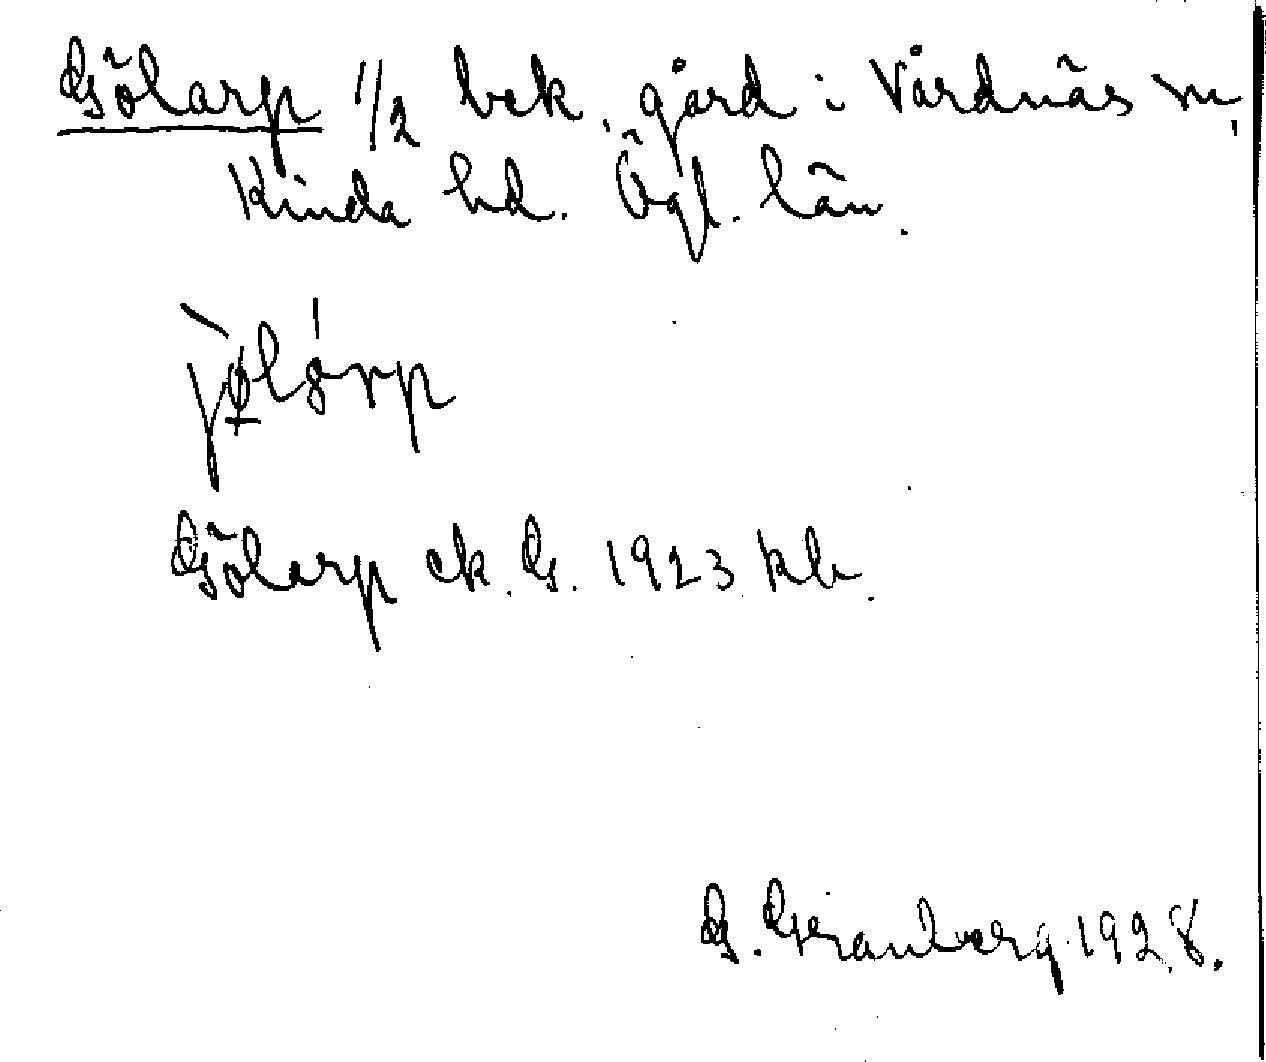 Gölarp 1/2 bek. gård i Vårdnäs sn,
Kinda hd. Ögl. län.
Gölarp ek. G. 1923 kb.
G. Granberg 1928.